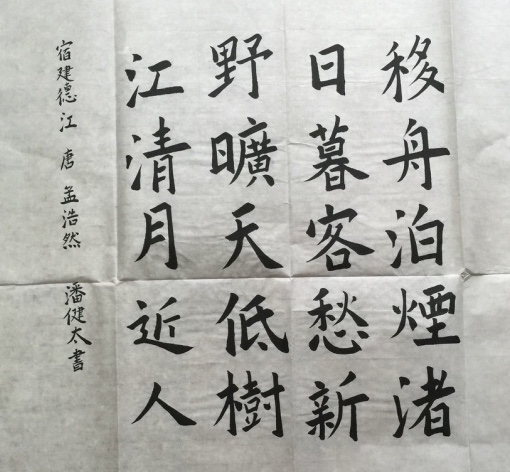 移舟泊煙渚
日暮客愁新
野曠天低樹
江清月近人
宿建德江 唐 孟浩然 潘健太書